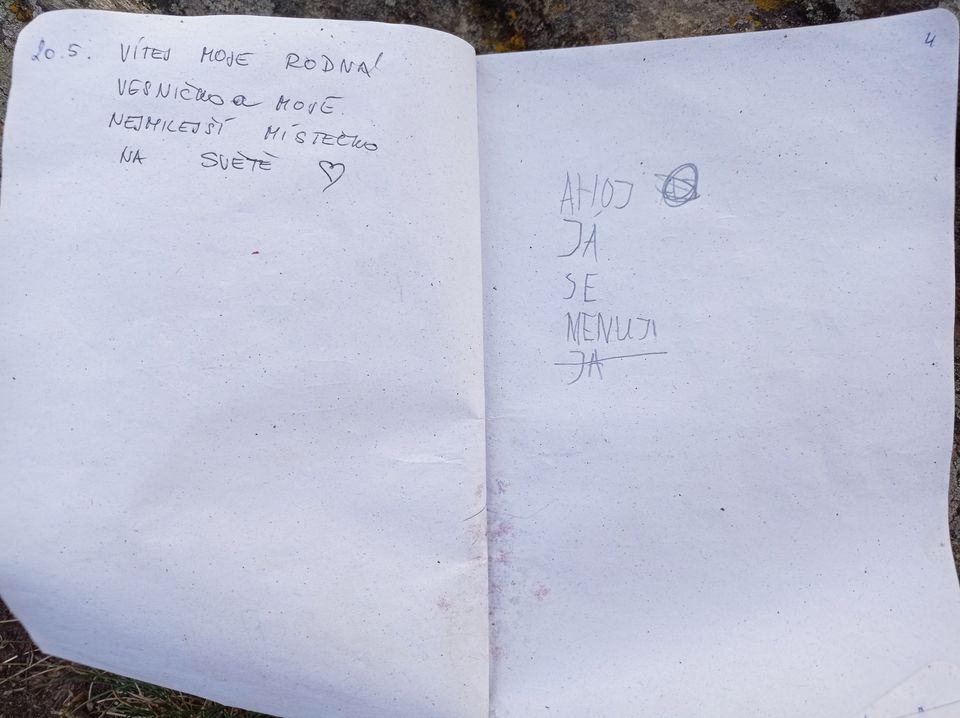 20.5. VÍTEJ MOJE RODNÁ!
VESNIČKO a MOVÉ
NEJMILEJŠÍ MÍSTEČKO
NA SVĚTĚ ♡
4
AHOJ
JÁ
SE
MENUJI
JA